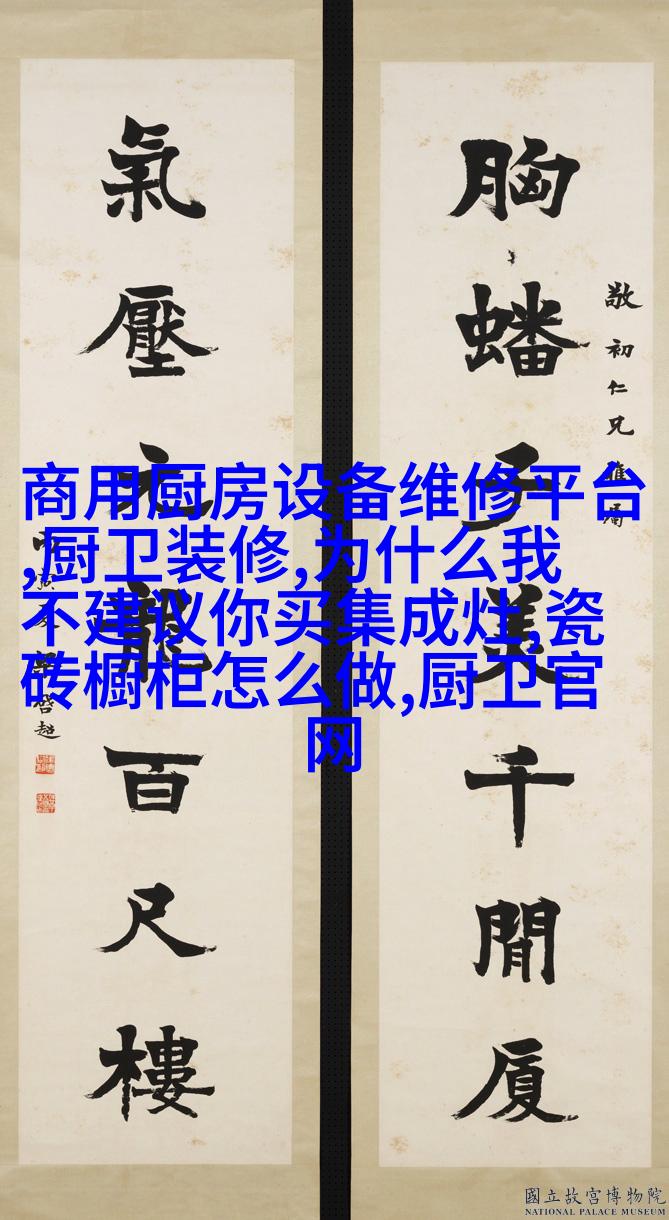 胸蟠子美千間厦
敬初仁兄雅屬
氣壓元龍百尺樓
啓超
商用厨房设备维修平台
,厨卫装修,为什么我
不建议你买集成灶,瓷
砖橱柜怎么做,厨卫官
网
國立故宮博物院
NATIONAL PALACE MUSEUM